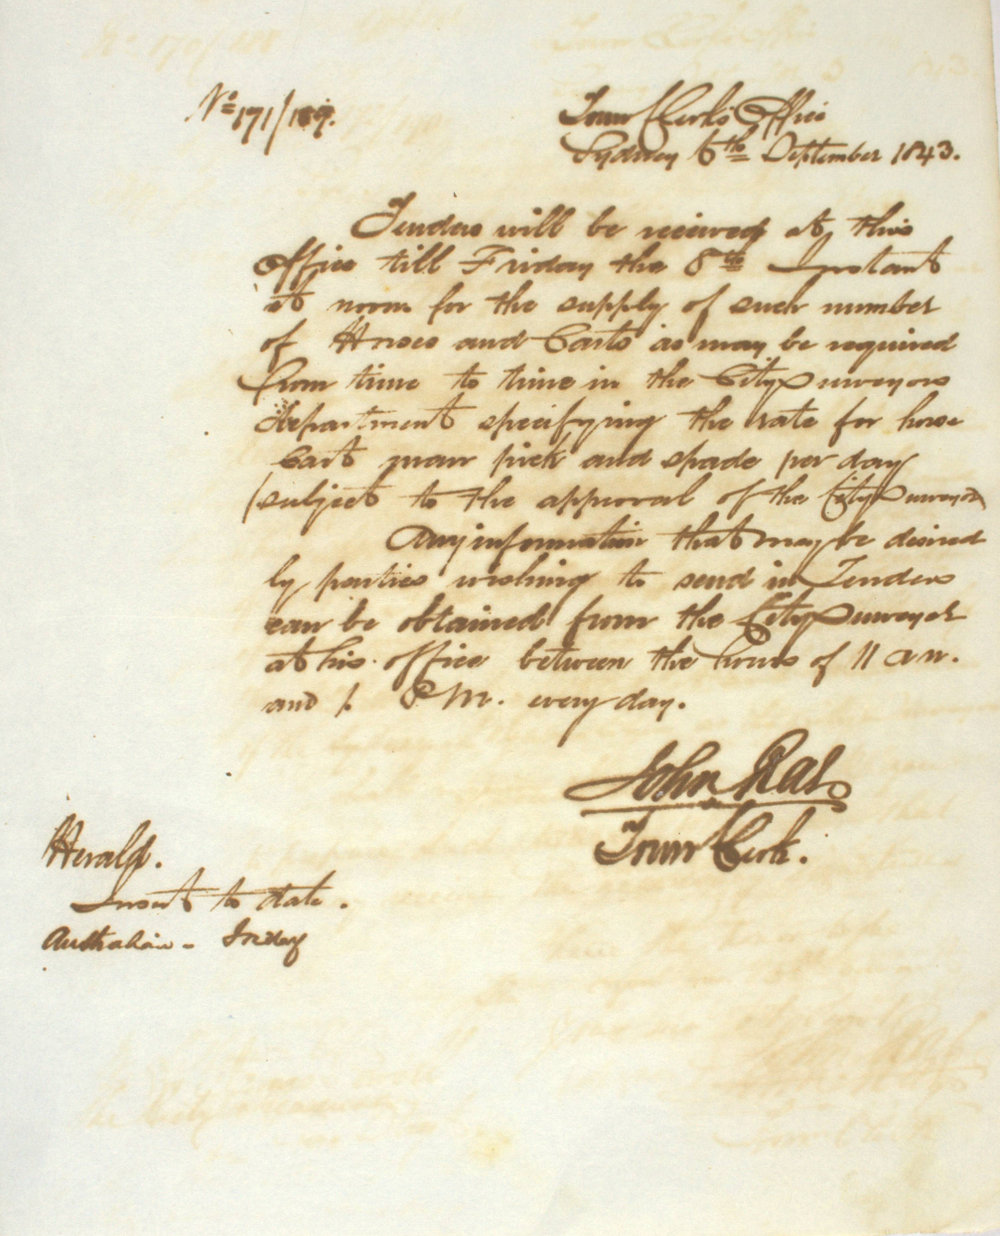 No 171/189.
Town Clerk's Office
Sydney 6th September 1843.
Tenders will be received at this
Office till Friday the 8th Instant
at noon for the supply of such number
of Horses and Carts as may be required
from time to time in the City Surveyors
department specifying the rate for horse
Cart man pick and spade per day
(subject to the approval of the City Surveyor)
Any information that may be desired
by parties wishing to send in Tenders
can be obtained from the City Surveyor
at his office between the hours of 11 am.
and 1. PM. every day.
John Rae
Town Clerk.
Herald.
Insert to date.
Australian - Friday